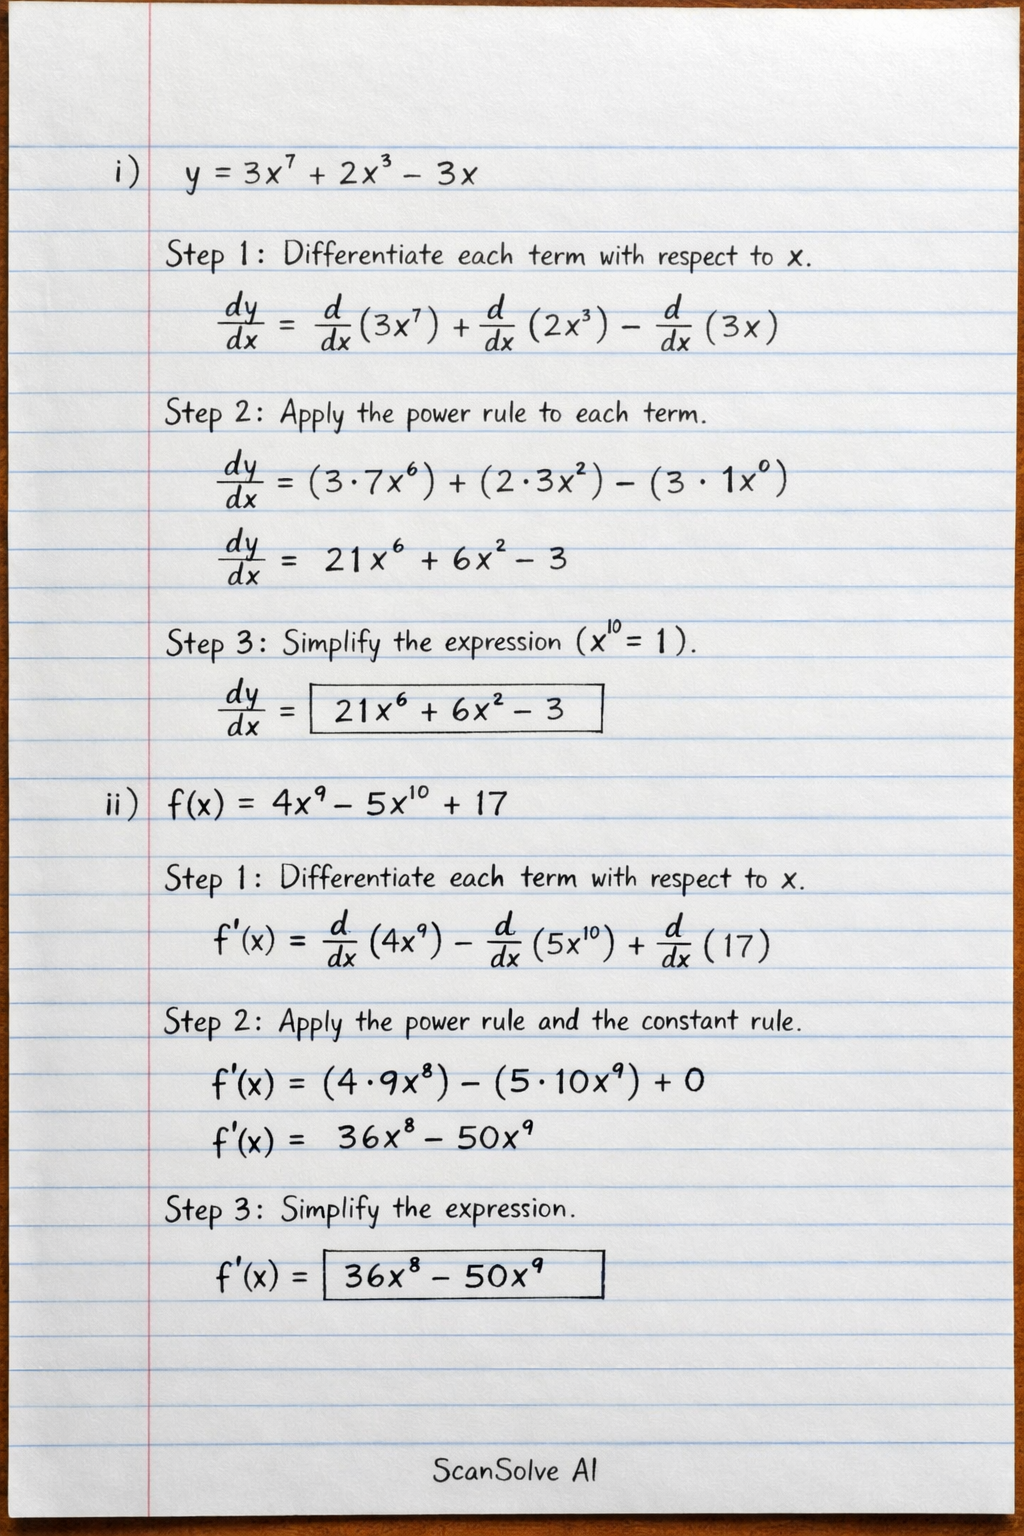 i) y = 3x⁷ + 2x³ − 3x
Step 1: Differentiate each term with respect to x.
dy/dx = d/dx (3x⁷) + d/dx (2x³) − d/dx (3x)
Step 2: Apply the power rule to each term.
dy/dx = (3·7x⁶) + (2·3x²) − (3 · 1x⁰)
dy/dx = 21x⁶ + 6x² − 3
Step 3: Simplify the expression (x¹⁰ = 1).
dy/dx = 21x⁶ + 6x² − 3
ii) f(x) = 4x⁹ − 5x¹⁰ + 17
Step 1: Differentiate each term with respect to x.
f'(x) = d/dx (4x⁹) − d/dx (5x¹⁰) + d/dx (17)
Step 2: Apply the power rule and the constant rule.
f'(x) = (4·9x⁸) − (5·10x⁹) + 0
f'(x) = 36x⁸ − 50x⁹
Step 3: Simplify the expression.
f'(x) = 36x⁸ − 50x⁹
ScanSolve AI